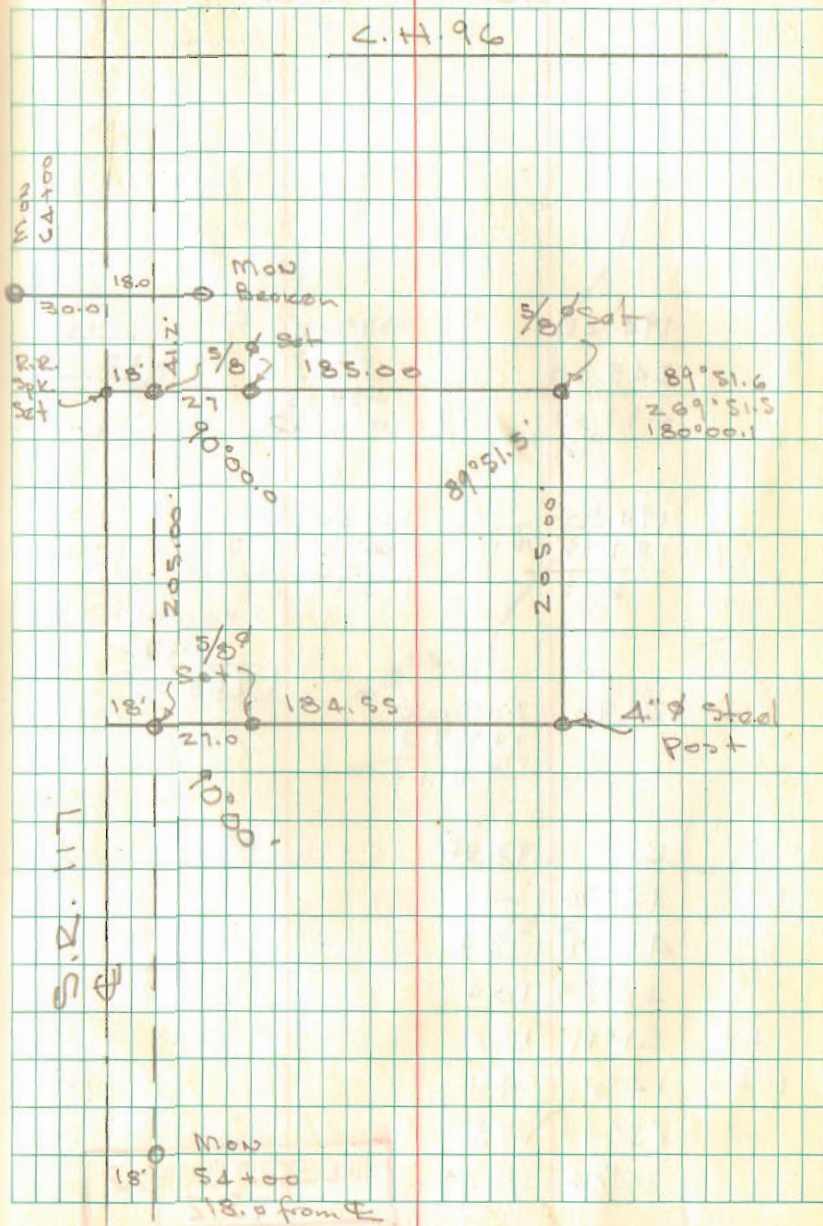 C.H. 96
Mon
64+00
30.0
18.0
Mon
Broken
41.2'
R.R.
Spk.
Set
18'
5/8"ø Set
27
185.00
5/8"ø Set
89°51.6
269°51.5
180°00.1
90°00.0
89°51.5'
205.00'
205.00'
5/8"ø
Set
18'
27.0
184.55
4"ø Steel
Post
90°00.
S.R. 117
℄
Mon
54+00
18.0 from ℄
18'